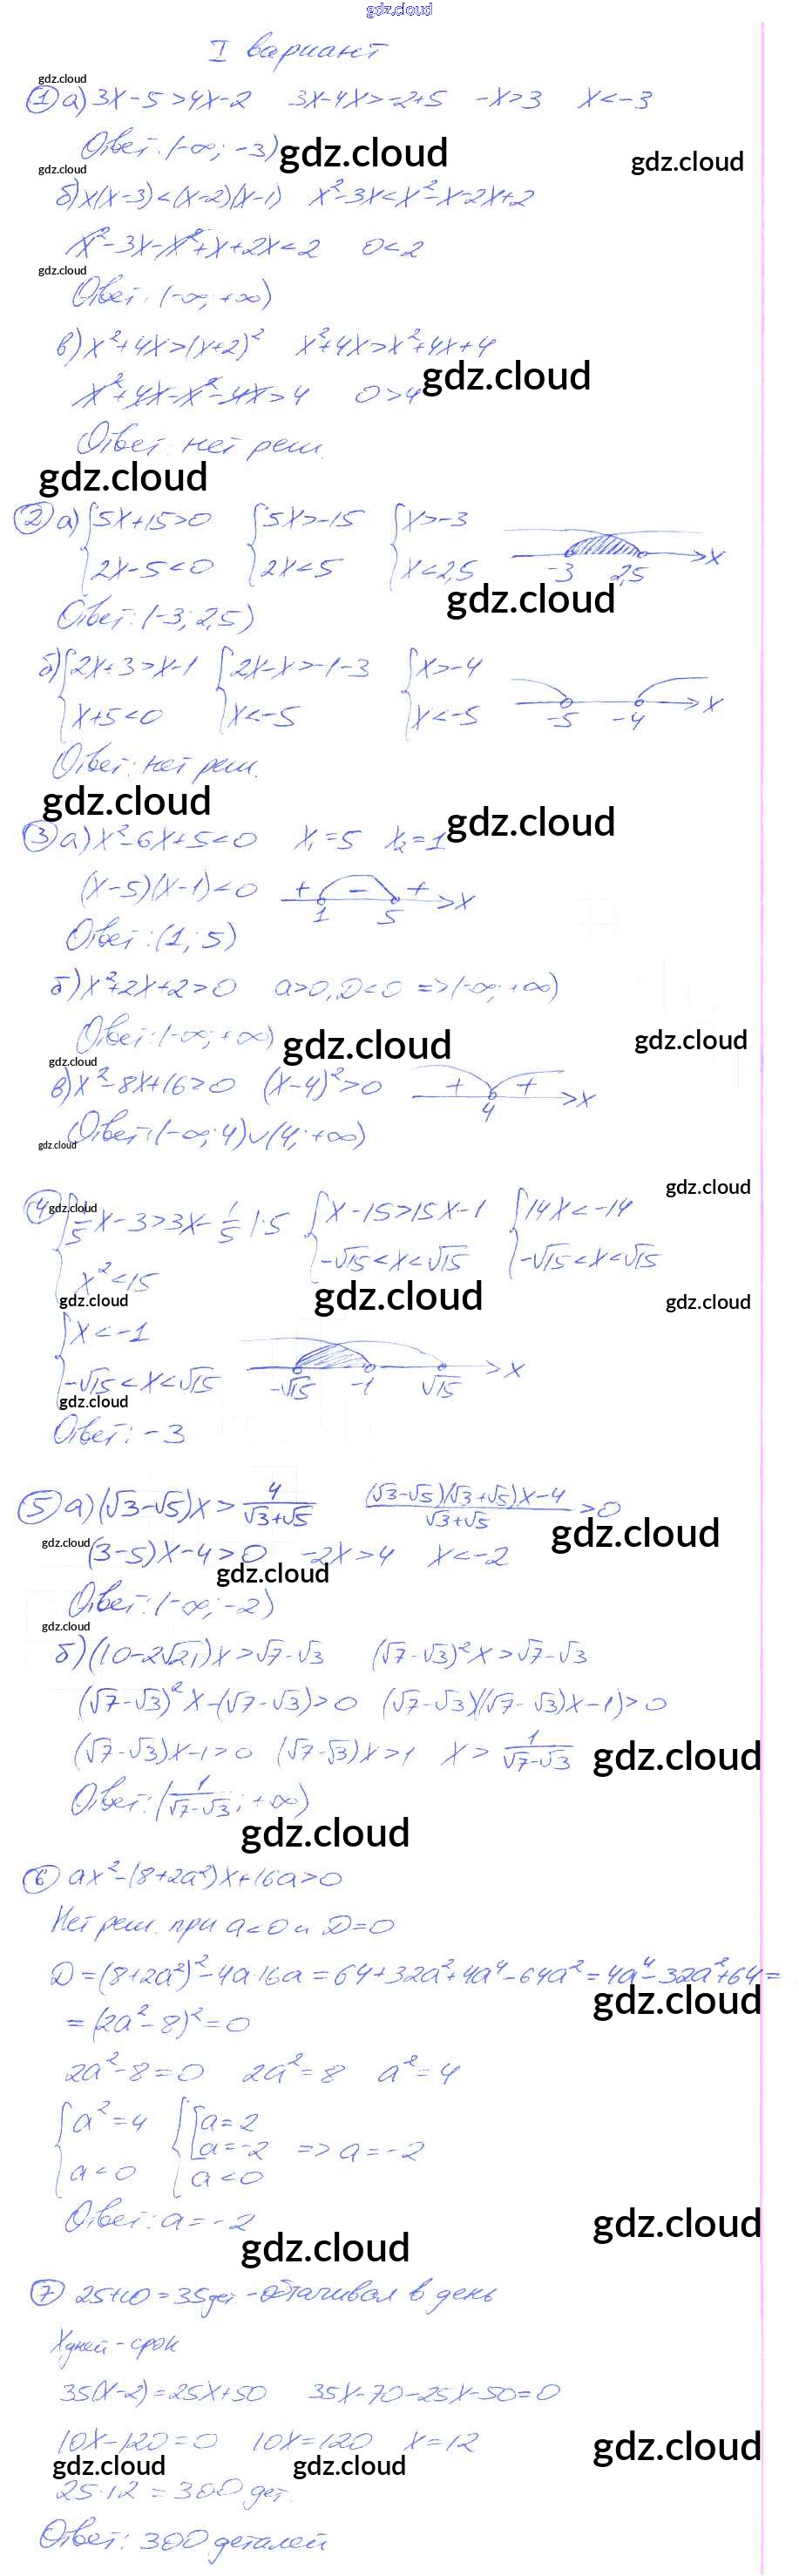 gdz.cloud
I вариант
gdz.cloud
① а) 3x-5>4x-2 3x-4x>-2+5 -x>3 x<-3
Ответ: (-∞; -3) gdz.cloud gdz.cloud
gdz.cloud
б) x(x-3)<(x-2)(x-1) x²-3x<x²-x-2x+2
x²-3x-x²+x+2x<2 0<2
gdz.cloud
Ответ: (-∞; +∞)
в) x²+4x>(x+2)² x²+4x>x²+4x+4
gdz.cloud
x²+4x-x²-4x>4 0>4
Ответ: нет реш.
gdz.cloud
② а) {5x+15>0 {5x>-15 {x>-3
{2x-5<0 {2x<5 {x<2,5 -3 2,5 x
gdz.cloud
Ответ: (-3; 2,5)
б) {2x+3>x-1 {2x-x>-1-3 {x>-4
{x+5<0 {x<-5 {x<-5 -5 -4 x
Ответ: нет реш.
gdz.cloud gdz.cloud
③ а) x²-6x+5<0 x₁=5 x₂=1
(x-5)(x-1)<0 + - + 1 5 x
Ответ: (1; 5)
б) x²+2x+2>0 a>0, D<0 => (-∞; +∞)
Ответ: (-∞; +∞) gdz.cloud gdz.cloud
gdz.cloud
в) x²-8x+16>0 (x-4)²>0 + + 4 x
Ответ: (-∞; 4)∪(4; +∞)
gdz.cloud
gdz.cloud
④ gdz.cloud {1/5 x-3>3x-1/5 |·5 {x-15>15x-1 {14x<-14
{x²<15 {-√15<x<√15 {-√15<x<√15
gdz.cloud gdz.cloud gdz.cloud
{x<-1
{-√15<x<√15 -√15 -1 √15 x
gdz.cloud
Ответ: -3
⑤ а) (√3-√5)x > 4/(√3+√5) ((√3-√5)(√3+√5)x-4)/(√3+√5) >0
gdz.cloud
gdz.cloud (3-5)x-4>0 -2x>4 x<-2
gdz.cloud
Ответ: (-∞; -2)
gdz.cloud
б) (10-2√21)x>√7-√3 (√7-√3)²x>√7-√3
(√7-√3)²x-(√7-√3)>0 (√7-√3)((√7-√3)x-1)>0
(√7-√3)x-1>0 (√7-√3)x>1 x > 1/(√7-√3) gdz.cloud
Ответ: (1/(√7-√3); +∞)
gdz.cloud
⑥ ax²-(8+2a²)x+16a>0
Нет реш. при a<0 и D=0
D=(8+2a²)²-4a·16a=64+32a²+4a⁴-64a²=4a⁴-32a²+64=
gdz.cloud
=(2a²-8)²=0
2a²-8=0 2a²=8 a²=4
{a²=4 {[a=2
[a=-2 => a=-2
{a<0 {a<0
Ответ: a=-2 gdz.cloud
gdz.cloud
⑦ 25+10=35 дет. - обтачивал в день
x дней - срок
35(x-2)=25x+50 35x-70-25x-50=0
10x-120=0 10x=120 x=12 gdz.cloud
gdz.cloud gdz.cloud
25·12=300 дет.
Ответ: 300 деталей